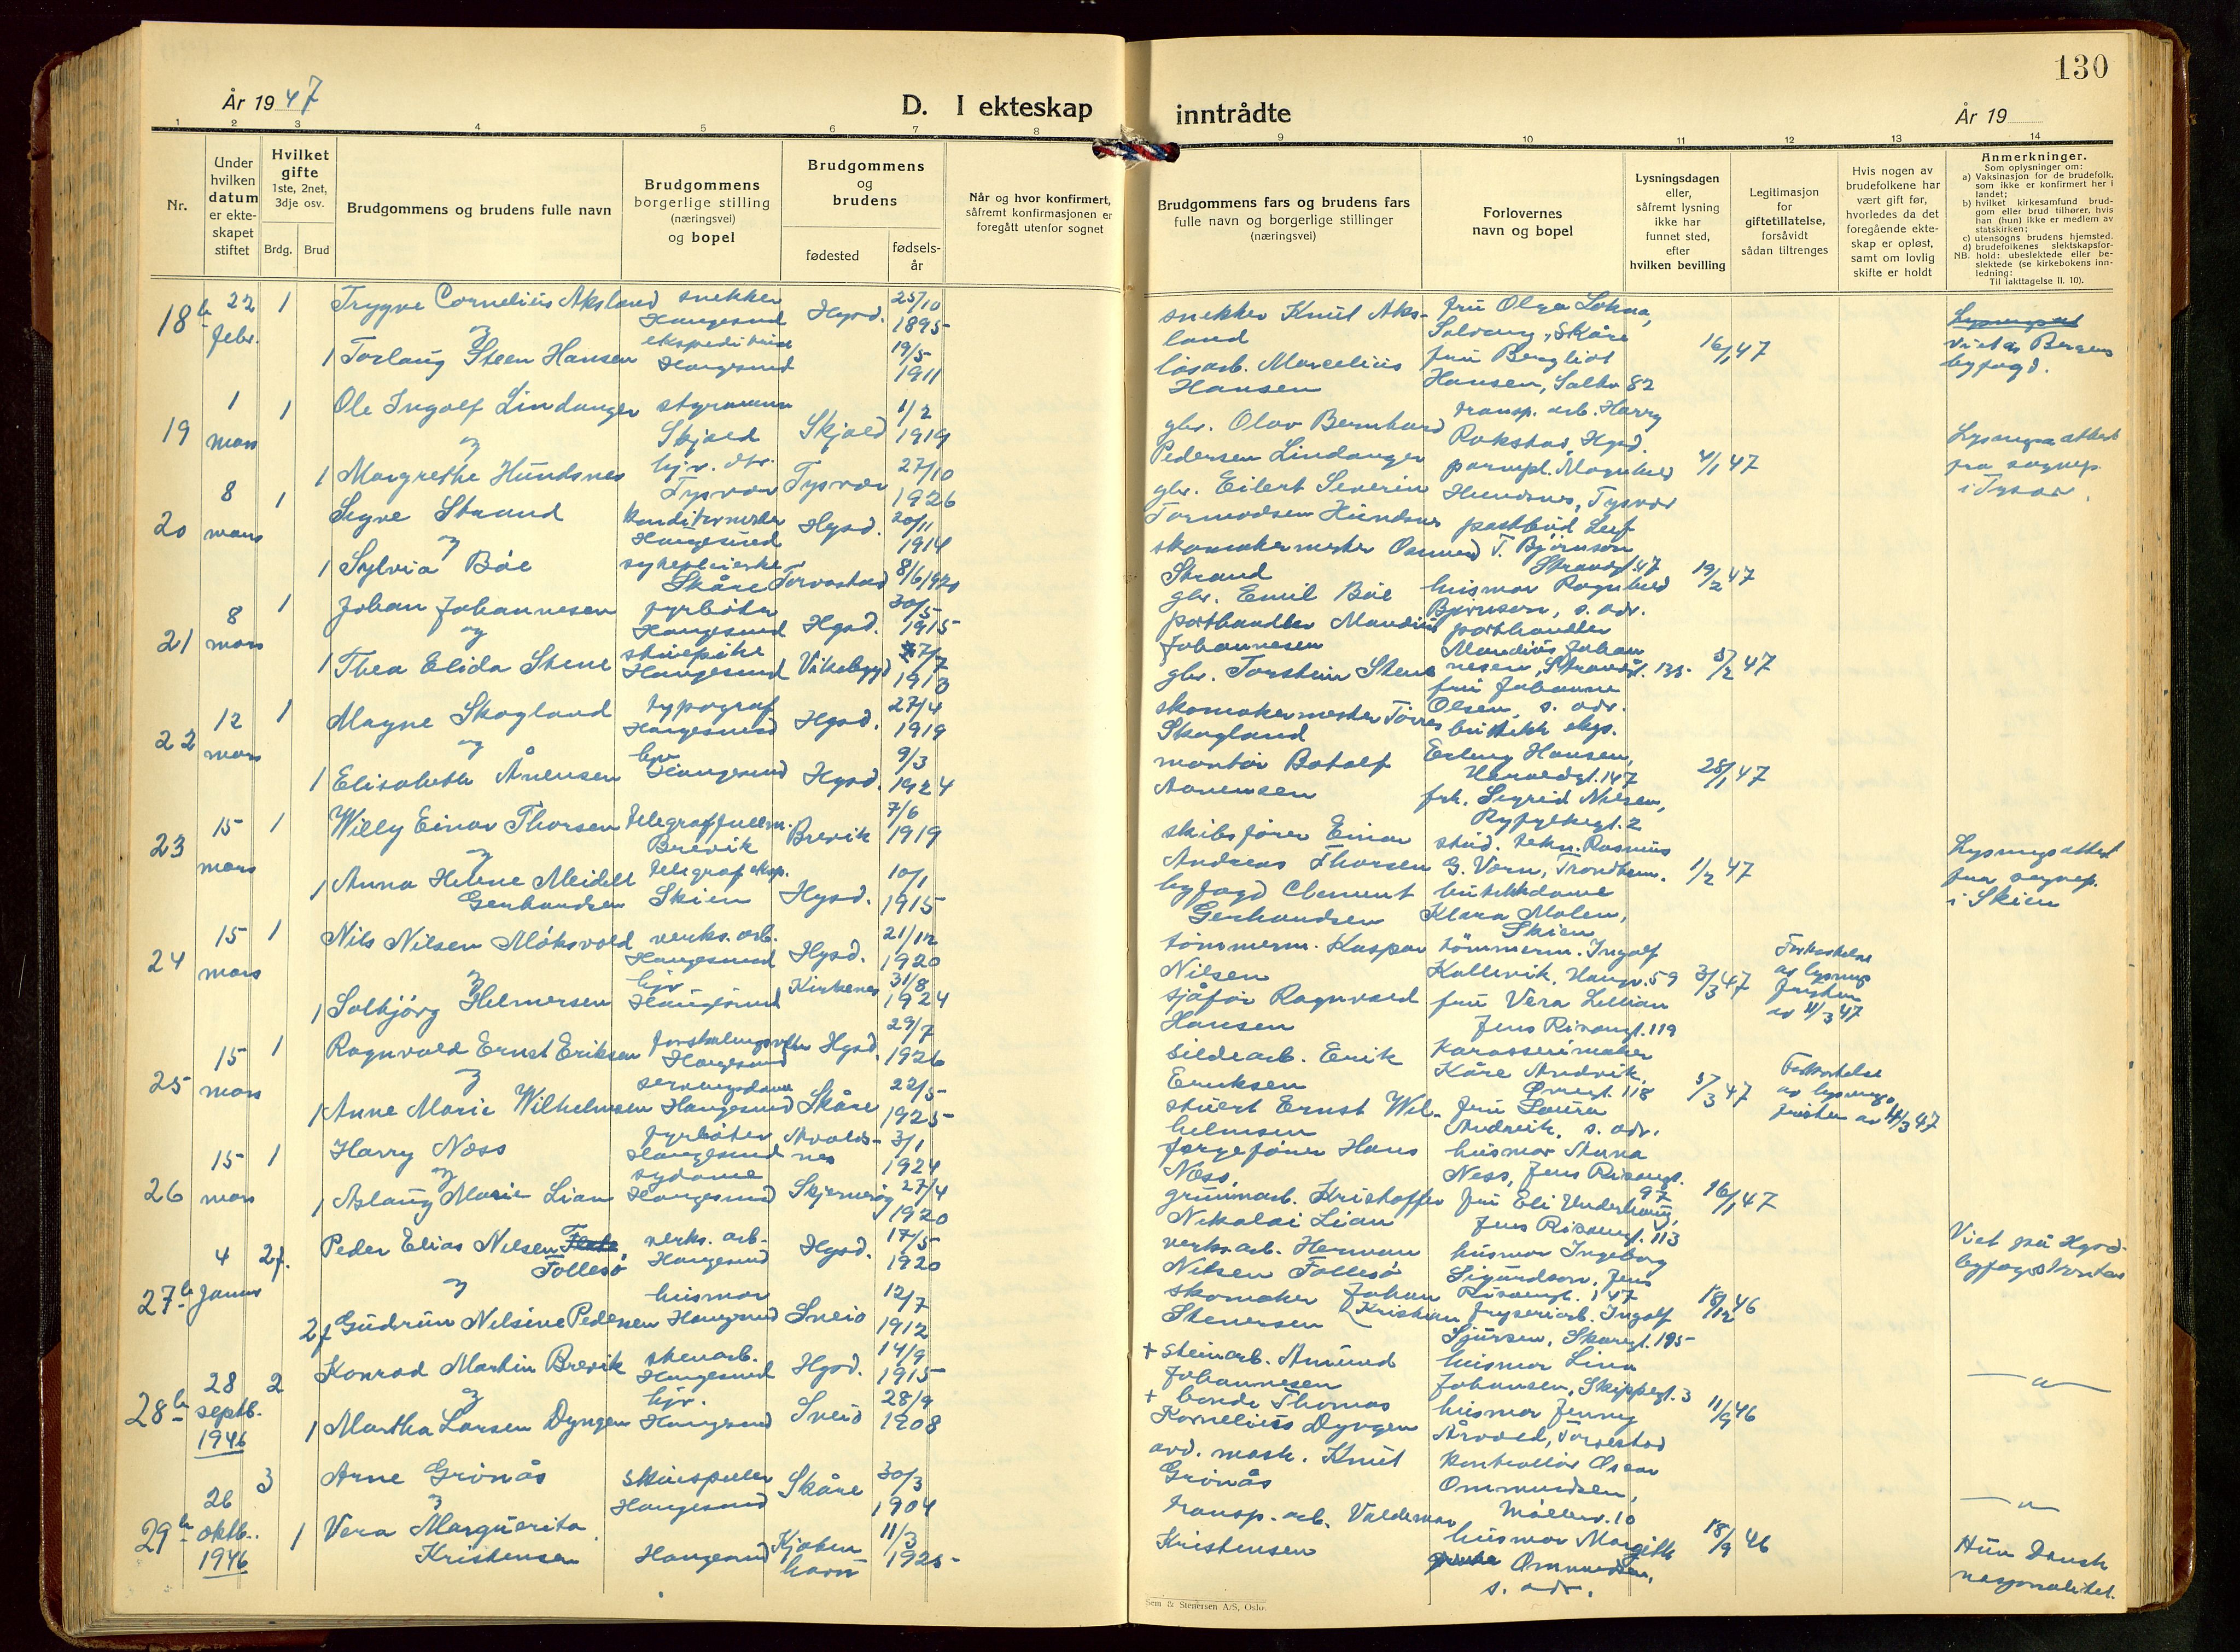 130
År 1947
D. I ekteskap inntrådte
År 19
1 2 3 4 5 6 7 8 9 10 11 12 13 14
Nr.
Under hvilken datum er ekteskapet stiftet
Hvilket gifte 1ste, 2net, 3dje osv.
Brdg. Brud
Brudgommens og brudens fulle navn
Brudgommens borgerlige stilling (næringsvei) og bopel
Brudgommens og brudens
fødested
fødselsår
Når og hvor konfirmert, såfremt konfirmasjonen er foregått utenfor sognet
Brudgommens fars og brudens fars fulle navn og borgerlige stillinger (næringsvei)
Forlovernes navn og bopel
Lysningsdagen eller, såfremt lysning ikke har funnet sted, efter hvilken bevilling
Legitimasjon for giftetillatelse, forsåvidt sådan tiltrenges
Hvis nogen av brudefolkene har vært gift før, hvorledes da det foregående ekteskap er opløst, samt om lovlig skifte er holdt
Anmerkninger.
Som oplysninger om:
a) Vaksinasjon for de brudefolk, som ikke er konfirmert her i landet;
b) hvilket kirkesamfund brudgom eller brud tilhører, hvis han (hun) ikke er medlem av statskirken;
c) utensogns brudens hjemsted.
d) brudefolkenes slektskapsforhold: ubeslektede eller beslektede (se kirkebokens innledning:
NB. Til iakttagelse II. 10).
18b 22 febr. 1 Trygve Cornelius Aksland snekker Haugesund Hgsd. 25/10 1895
og
1 Torlaug Steen Hansen Haugesund 19/5 1911
snekker Knut Aksland
løsarb. Marcelius Hansen
fru Olga
fru Bergliot Hansen, Salhv 82
16/1 47
viet av Bergens byfogd.
19 1 mars 1 Ole Ingolf Lindanger styrmann Skjold Skjold 1/2 1919
og
1 Margrethe Hundsnes hjv. dtr. Tysvær Tysvær 27/10 1926
gbr. Olav Bernhard Pedersen Lindanger
gbr. Eilert Severin Tormodsen Hundsnes
transp. arb. Harry Rokstad, Hgsd.
Hundsnes, Tysvær
4/1 47
Lysningsattest fra sognep. i Tysvær.
20 8 mars 1 Sigve Strand konditormester Haugesund Hgsd. 20/11 1914
og
1 Sylvia Bøe sykepleierske Skåre Torvastad 8/6 1920
skomakermester Osmund Strand
gbr. Emil Bøe
postbud Leif T. Bjørnson Strandgt. 47
husmor Ragnhild Bjørnson, s. adr.
19/2 47
21 8 mars 1 Johan Johannesen fyrbøter Haugesund Hgsd. 30/5 1915
og
1 Thea Elida Stene stuepike Haugesund Vikebygd 7/7 1913
posthandler Mandius Johannesen
gbr. Torstein Stene
posthandler Mandius Johannesen, Strandgt. 135
fru Johanne Olsen, s. adr.
5/2 47
22 12 mars 1 Magne Skogland typograf Haugesund Hgsd. 27/4 1919
og
1 Elisabeth Ånensen hjv Haugesund Hgsd. 9/3 1924
skomakermester Tørres Skogland
montør Botolf Aanensen
butikk eksp. Erling Hansen, Haraldsgt. 147
frk. Sigrid Nilsen, Ryfylkegt. 2
28/1 47
23 15 mars 1 Willy Einar Thorsen telegraffullm. Brevik Brevik 7/6 1919
og
1 Anna Helene Meidell Gerhardsen telegrafeksp. Skien Hgsd. 10/1 1915
skibsfører Einar Andreas Thorsen
byfogd Clement Gerhardsen
stud. tekn. Rasmus G. Vorn, Trondheim.
butikkdame Klara Molen, Skien
1/2 47
Lysningsattest fra sognep. i Skien
24 15 mars 1 Nils Nilsen Møksvold verks. arb. Haugesund Hgsd. 21/12 1920
og
1 Solbjørg Helmersen hjv Haugesund Kirkenes 31/8 1924
tømmerm. Kaspar Nilsen
sjåfør Ragnvald Hansen
tømmerm. Ingolf Kallevik, Haugv. 59
fru Vera Lillian Jens Risøengt. 119
3/3 47
Forkortelse av lysnings fristen av 11/3 47
25 15 mars 1 Ragnvald Ernst Eriksen Haugesund Hgsd. 29/7 1926
og
1 Anne Marie Wilhelmsen serveringsdame Haugesund Skåre 22/5 1925
sildearb. Erik Eriksen
stuert Ernst Wilhelmsen
Karosserimaker Kåre Andvik, 118
fru Laura Andvik, s. adr.
5/3 47
Forkortelse av lysnings fristen av 11/3 47
26 15 mars 1 Harry Næss fyrbøter Haugesund Avaldsnes 3/1 1924
og
1 Aslaug Marie Lian sydame Haugesund Skjernerøy 27/4 1920
fergefører Hans Næss,
grubearb. Kristoffer Nikolai Lian
husmor Anna Ness, Jens Risøengt. 97
fru Eli Underhaug, Jens Risøengt. 113
16/1 47
27b 4 januar 2f. Peder Elias Nilsen Follesø verks. arb. Haugesund Hgsd. 17/5 1920
og
2f Gudrun Nelsine Pedersen husmor Haugesund Sveio 12/7 1912
verks. arb. Herman Nilsen Follesø
skomaker Johan Kristian Stenersen
husmor Ingeborg Sigurdson, Jens Risøengt. 147
fryseriarb. Ingolf Sjursen, Skåregt. 195
18/12 46
Viet på Hgsd. byfogdkontor
28b 28 septb. 1946 2 Konrad Martin Brevik stenarb. Haugesund Hgsd. 14/9 1915
og
1 Martha Larsen Dyngen hjv. Haugesund Sveio 28/9 1908
+ steinarb. Amund Johannesen
+ bonde Thomas Kornelius Dyngen
husmor Lina Johansen, Skippergt. 3
husmor Jenny Årvold, Torvestad
11/9 46
—"—
29b 26 oktb. 1946 3 Arne Grønås skuespiller Haugesund Skåre 30/3 1904
og
1 Vera Marguerita Kristensen Haugesund Kjøbenhavn 11/3 1925
avd. mask. Knut Grønås
transp. arb. Valdemar Kristensen
kontrollør Oscar Ommundsen, Møllerv. 10
husmor Margith Ommundsen, s. adr.
18/9 46
—"—
Hun Dansk nasjonalitet.
Sem & Stenersen A/S, Oslo.